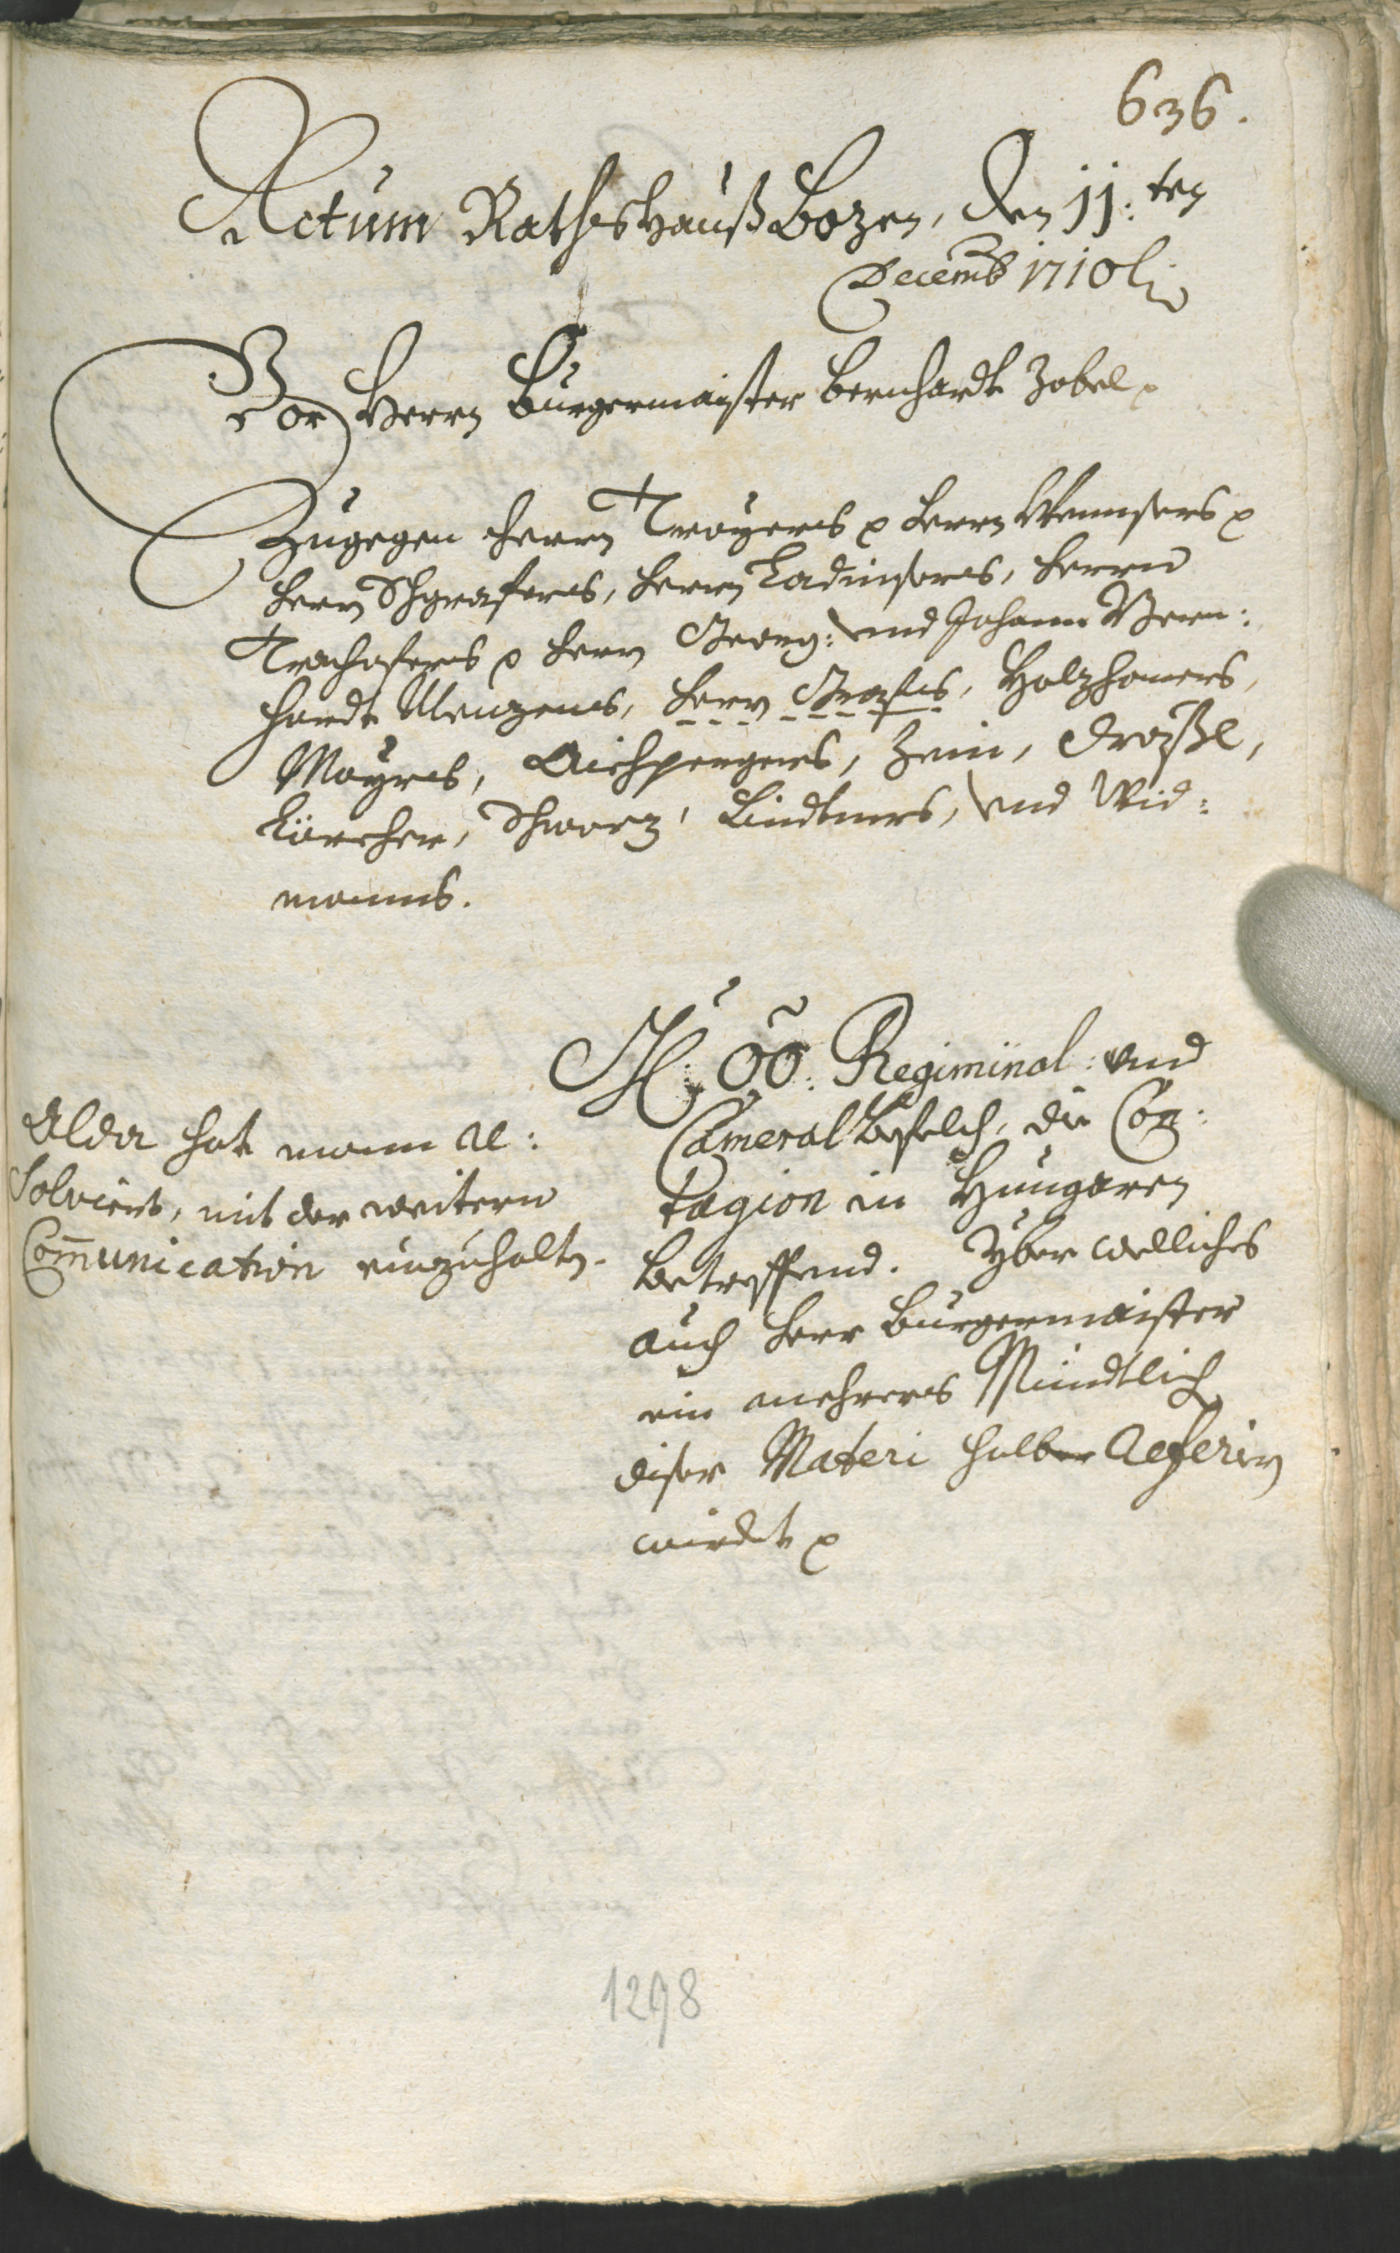 636.
Actum Rathshauß Bozen, den 11:ten
Decemb 1710
Vor Herrn Burgermaister Bernhardt Zobel
Zugegen Herrn Troyers p Herrn Wenser p
Herrn Herrn Ladinsers, Herrn
p Herrn Georg: und Johann Bern:
hardt Menzens, Herrn Grafens, Holzhamers,
Mayrs, Aichpergers, Zeni, Droßl,
Kürcher, Schwarz, Lindtners, und Wid:
manns.
OÖ: Regiminal: und
Cameral Befelch, die Con:
tagion in Hungaren
betreffend. Yber welliches
auch Herr Burgermaister
ein mehrers Mündtlich
diser Materi halber Referirn
wirdet p
Alda hat mann Re:
solviert, mit der weitern
Communication einzuhaltn.
1298